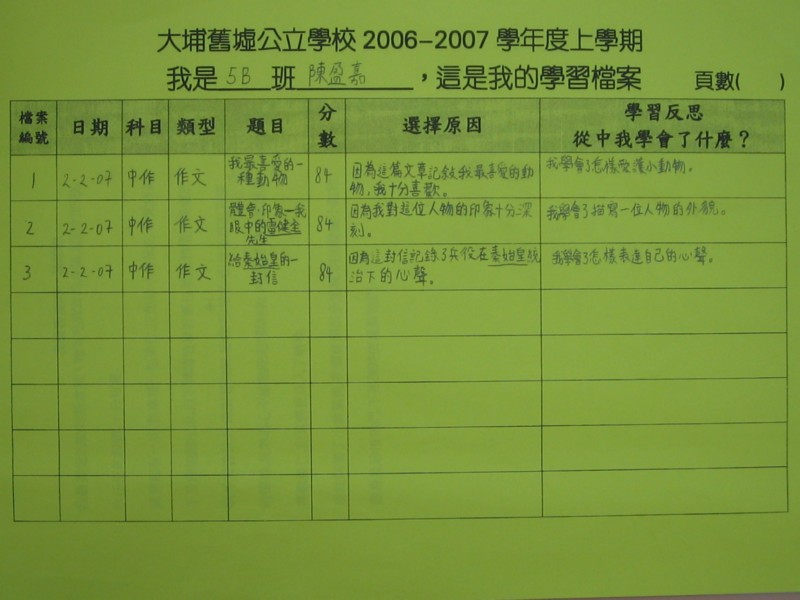 大埔舊墟公立學校 2006-2007 學年度上學期
我是 5B 班 陳盈嘉 ，這是我的學習檔案 頁數( )
檔案編號 日期 科目 類型 題目 分數 選擇原因 學習反思 從中我學會了什麼？
1 2-2-07 中作 作文 我最喜愛的一種動物 84 因為這篇文章記敍我最喜愛的動物，我十分喜歡。 我學會了怎樣愛護小動物。
2 2-2-07 中作 作文 體會·印象—我眼中的雷健全先生 84 因為我對這位人物的印象十分深刻。 我學會了描寫一位人物的外貌。
3 2-2-07 中作 作文 給秦始皇的一封信 84 因為這封信記錄了兵役在秦始皇統治下的心聲。 我學會了怎樣表達自己的心聲。